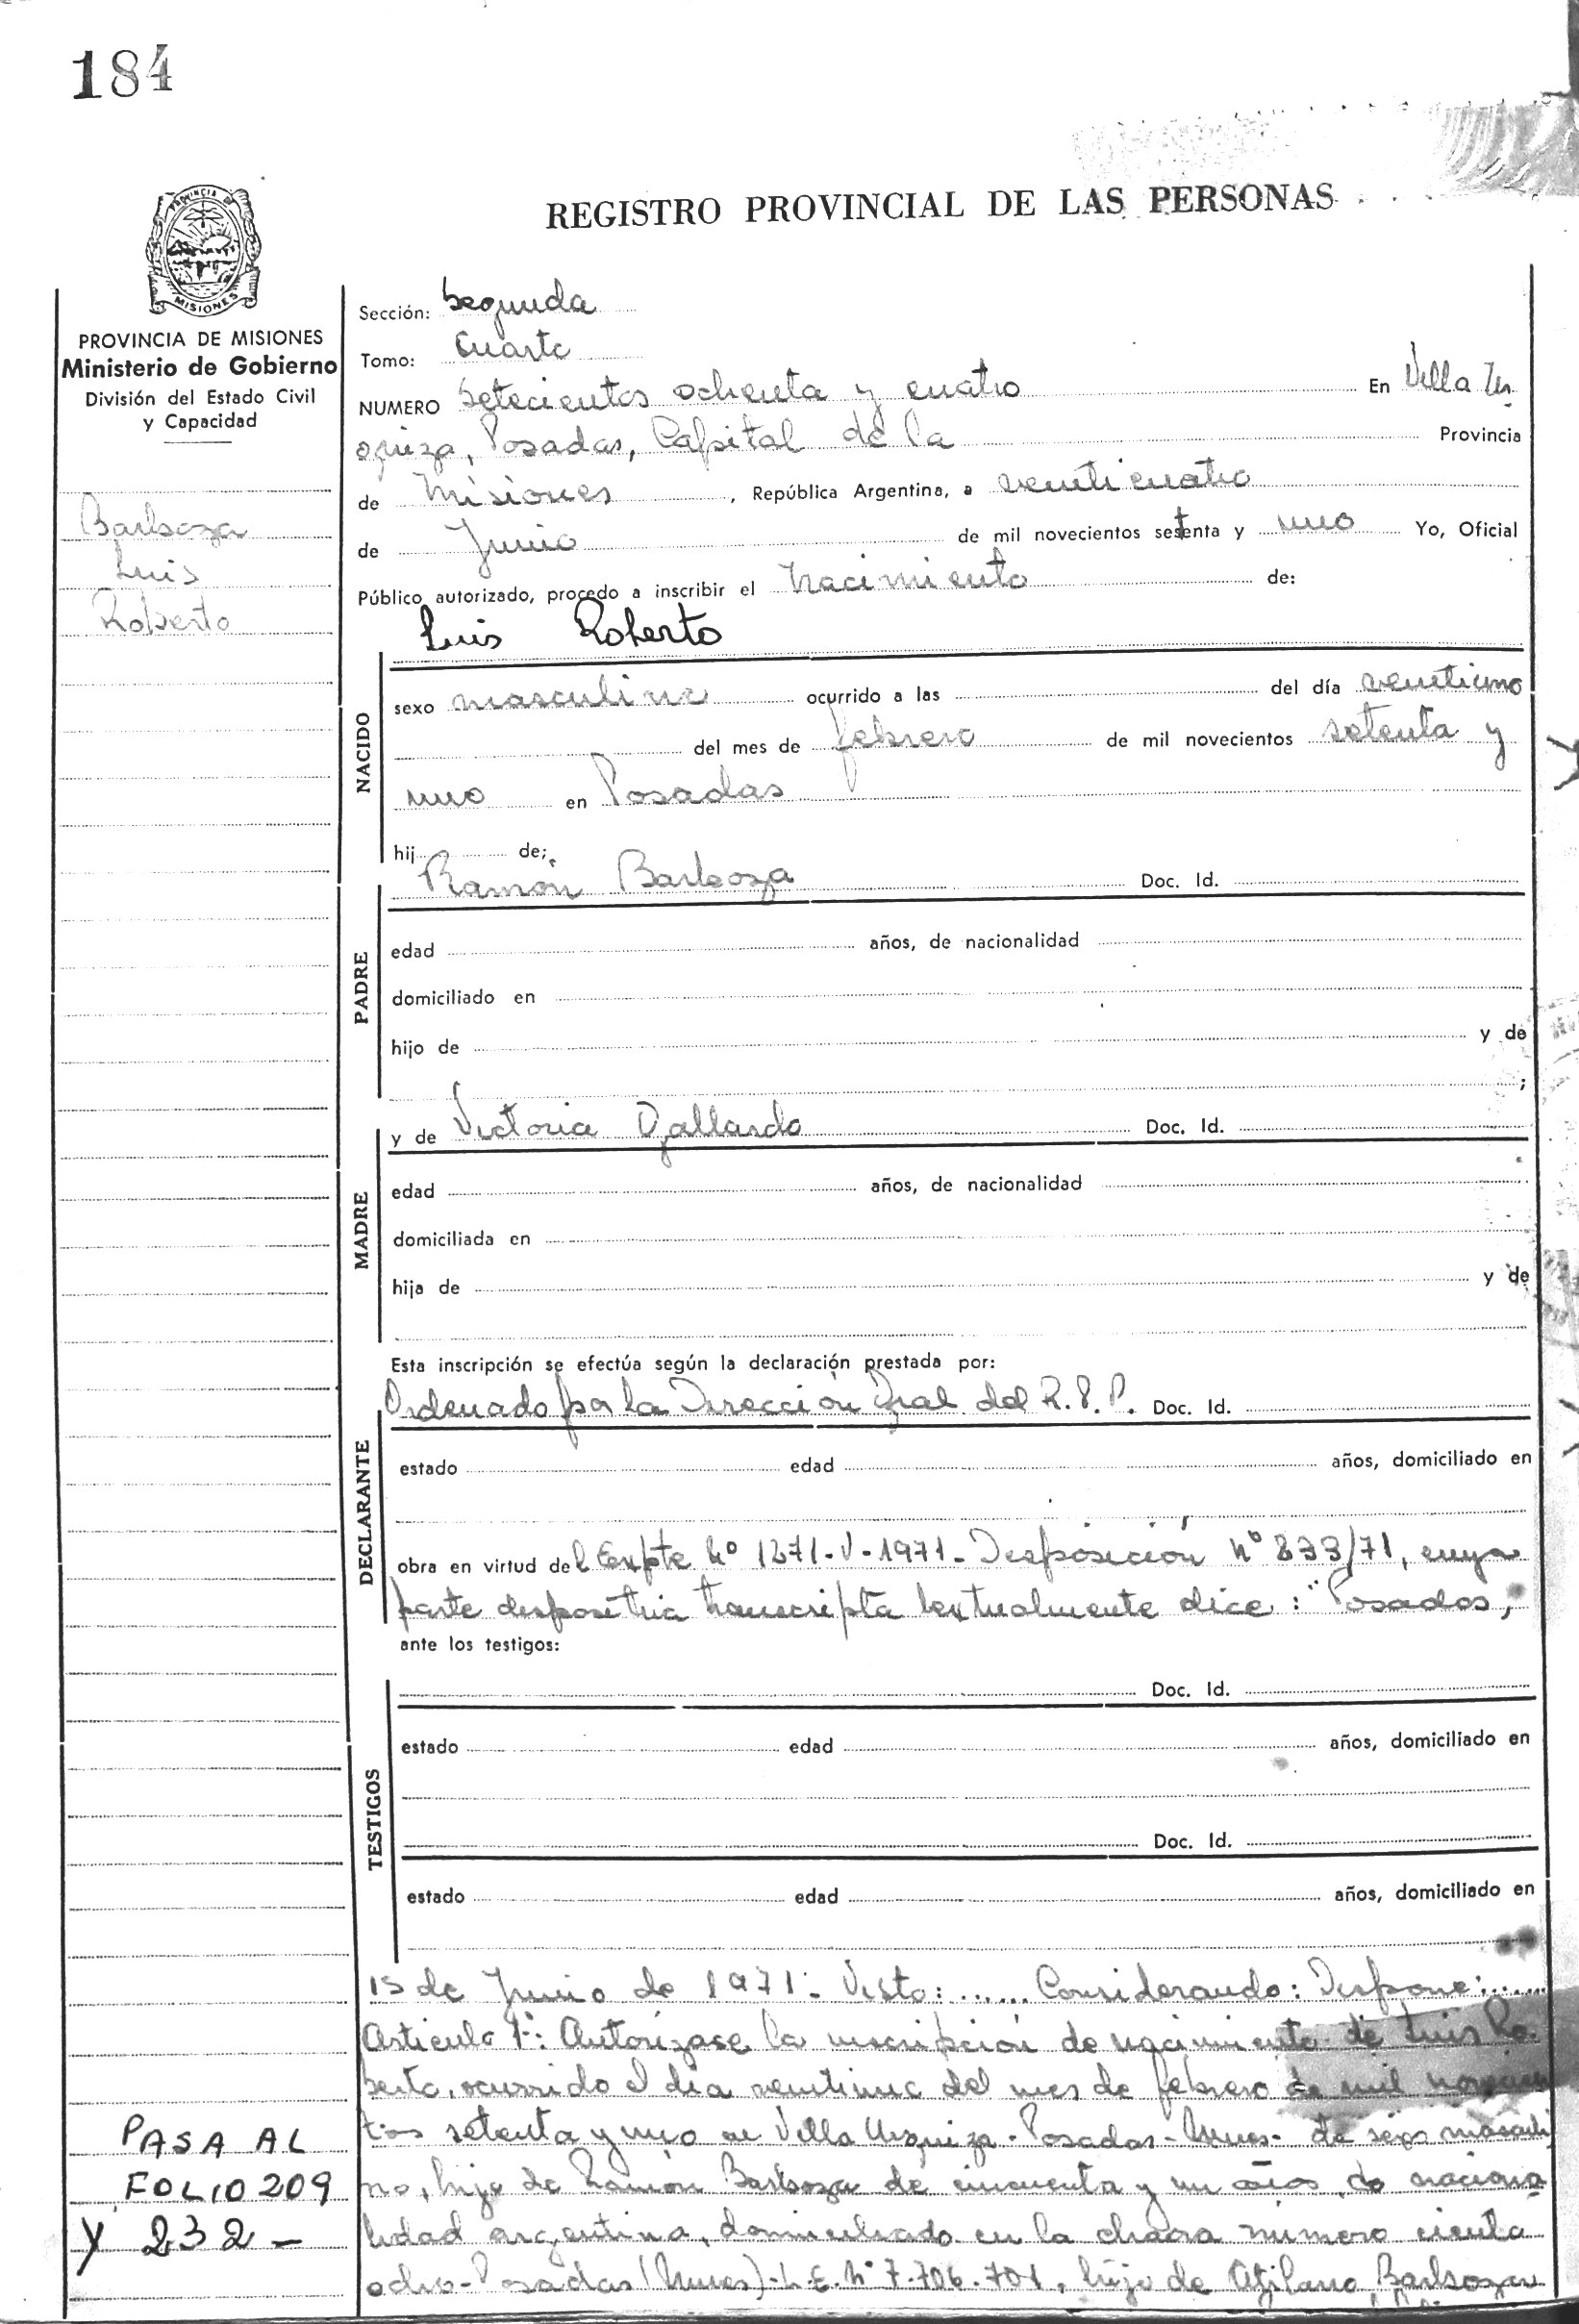 184
PROVINCIA DE
MISIONES
REGISTRO PROVINCIAL DE LAS PERSONAS
PROVINCIA DE MISIONES
Ministerio de Gobierno
División del Estado Civil
y Capacidad
Barboza
Luis
Roberto
Sección: Segunda
Tomo: Cuarto
NUMERO setecientos ochenta y cuatro En Villa Ur
quiza, Posadas, Capital de la Provincia
de Misiones, República Argentina, a veinticuatro
de Junio de mil novecientos setenta y uno Yo, Oficial
Público autorizado, procedo a inscribir el nacimiento de:
Luis Roberto
NACIDO
sexo masculino ocurrido a las del día veintiuno
del mes de febrero de mil novecientos setenta y
uno en Posadas
hij de;
Ramón Barboza Doc. Id.
PADRE
edad años, de nacionalidad
domiciliado en
hijo de y de
;
y de Victoria Gallardo Doc. Id.
MADRE
edad años, de nacionalidad
domiciliada en
hija de y de
Esta inscripción se efectúa según la declaración prestada por:
Ordenado por la Dirección Gral. del R.P.P. Doc. Id.
DECLARANTE
estado edad años, domiciliado en
obra en virtud del Expte Nº 1371-V-1971- Disposición Nº 833/71, cuya
parte dispositiva transcripta textualmente dice: "Posadas,
ante los testigos:
Doc. Id.
TESTIGOS
estado edad años, domiciliado en
Doc. Id.
estado edad años, domiciliado en
15 de Junio de 1971- Visto: ...... Considerando: Dispone: ......
Articulo 1º: Autorizase la inscripción de nacimiento de Luis Ro
berto, ocurrido el día veintiuno del mes de febrero de mil novecien
tos setenta y uno en Villa Urquiza - Posadas - Mnes - de sexo masculi
no, hijo de Ramón Barboza de cincuenta y un años, de naciona
lidad argentina, domiciliado en la chacra numero ciento
ocho - Posadas (Mnes) - L.E. Nº 7.706.701, hijo de Barboza
PASA AL
FOLIO 209
Y 232 -